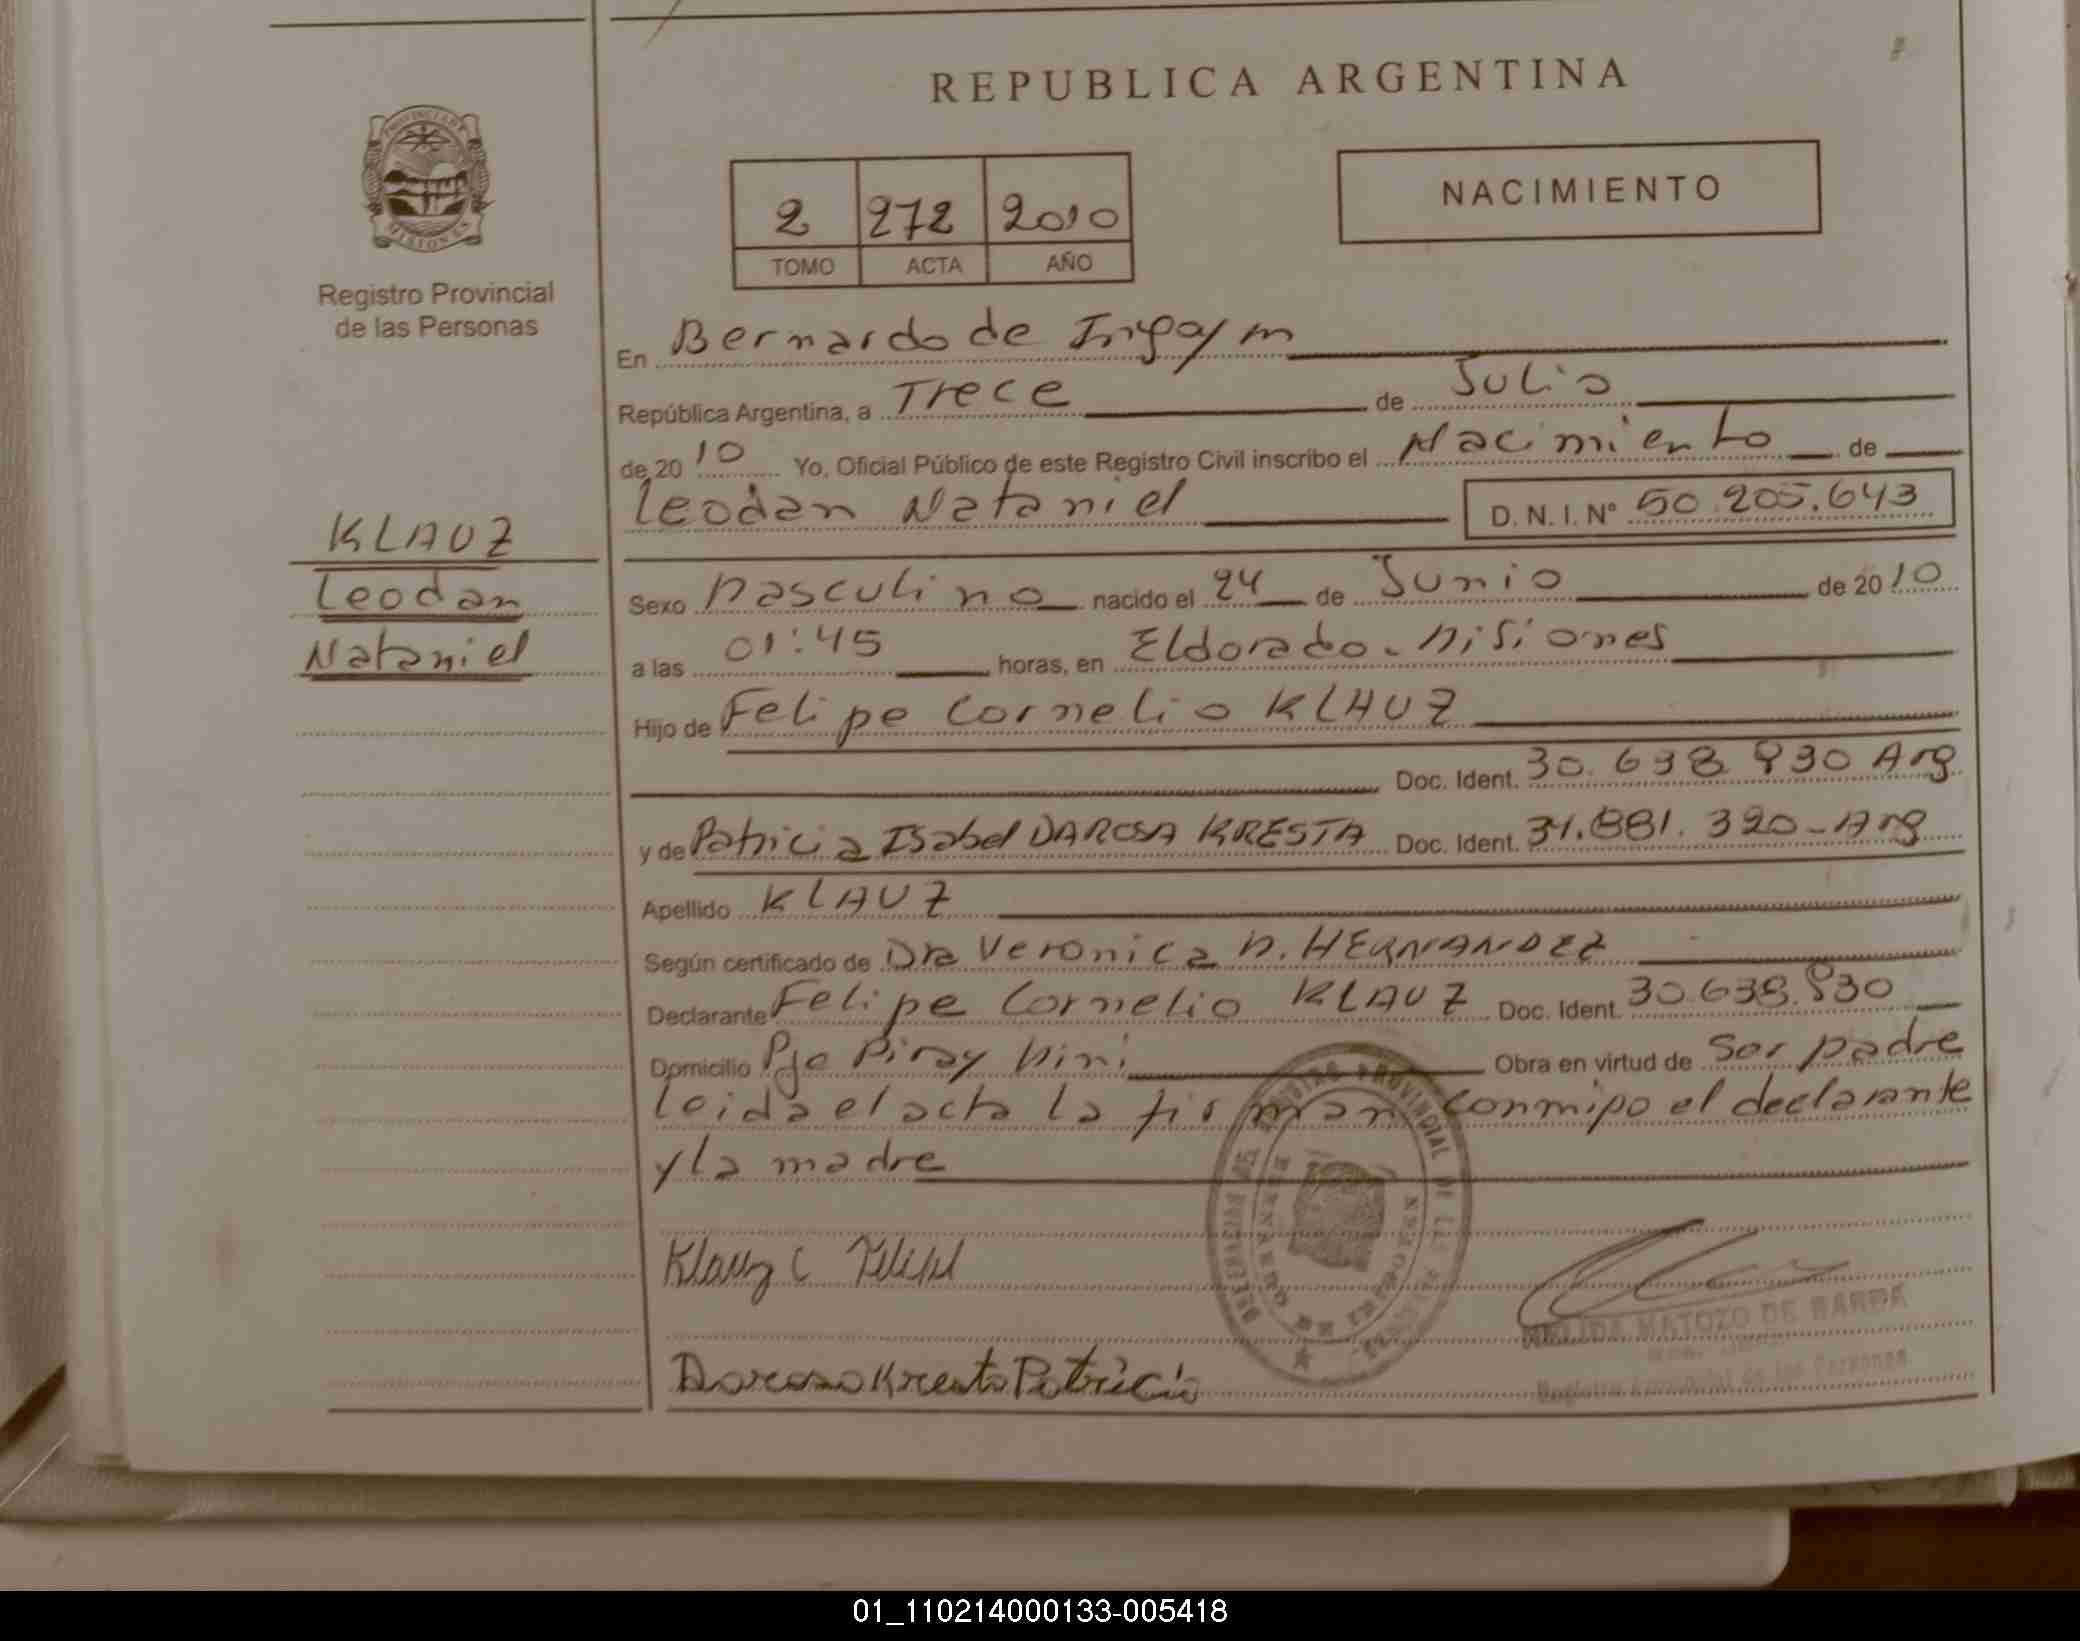 REPUBLICA ARGENTINA
PROVINCIA DE
MISIONES
Registro Provincial
de las Personas
2 272 2010
TOMO ACTA AÑO
NACIMIENTO
En Bernardo de Irigoyn
República Argentina, a Trece de Julio
de 20 10 Yo, Oficial Público de este Registro Civil inscribo el Nacimiento de
Leodan Nataniel D. N. I. Nº 50.205.643
KLAUZ
Leodan
Nataniel
Sexo Masculino nacido el 24 de Junio de 20 10
a las 01:45 horas, en Eldorado - Misiones
Hijo de Felipe Cornelio KLAUZ
Doc. Ident. 30.638.930 Arg
y de Patricia Isabel DAROSA KRESTA Doc. Ident. 31.881.320 - Arg
Apellido KLAUZ
Según certificado de Dra Veronica M. HERNANDEZ
Declarante Felipe Cornelio KLAUZ Doc. Ident. 30.638.930
Domicilio Pje Piray Mini Obra en virtud de Ser padre
leida el acta la firman conmigo el declarante
y la madre
Klauz C Felipe
PROVINCIAL DE LAS
MATOZO DE BARDA
Darosa Kresta Patricia
01_110214000133-005418